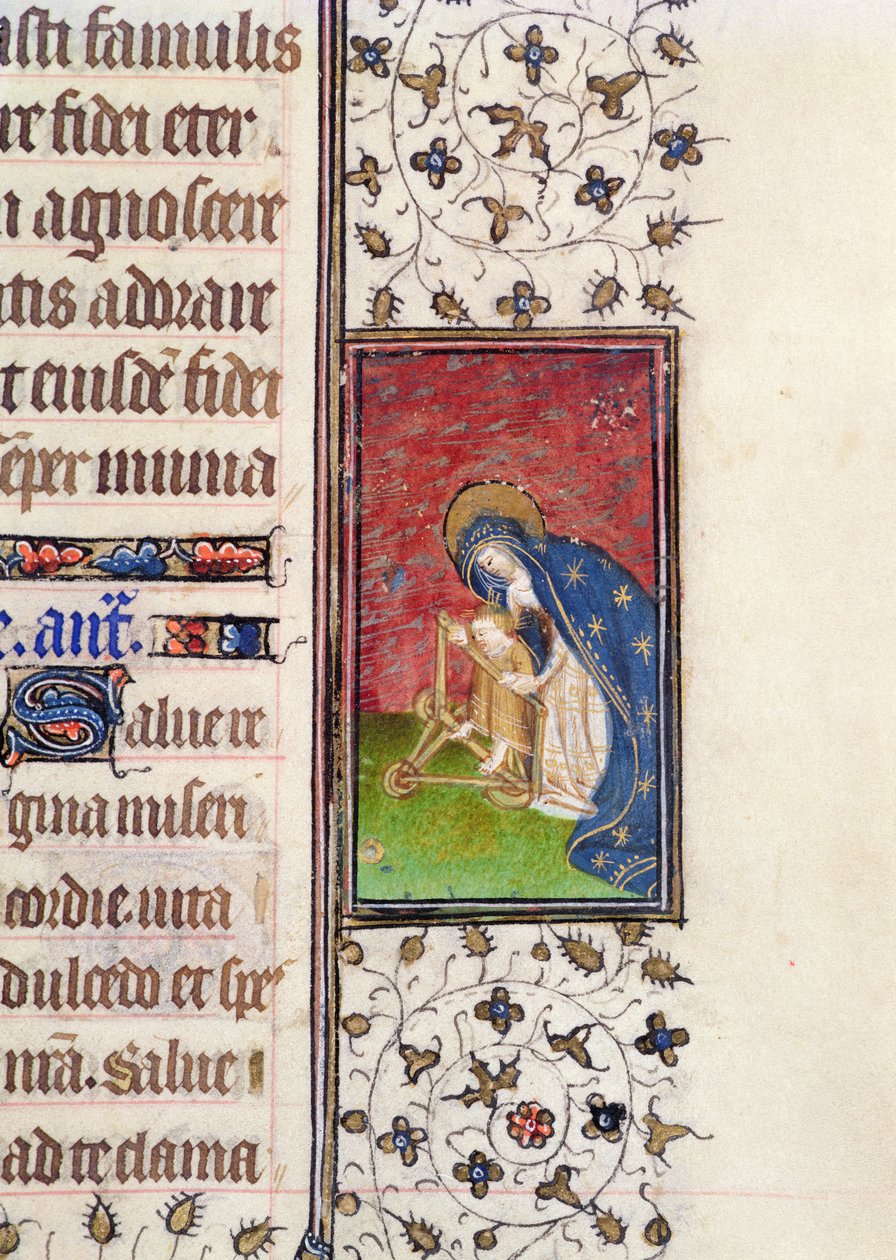 asti famulis
ire fidei eter
agnoscere
atis adorare
t eiusdē fidei
sēper munia
e. anť.
Salue re
gina miseri
cordie. uita
dulcedo et spes
nrā. Salue
ad te clama